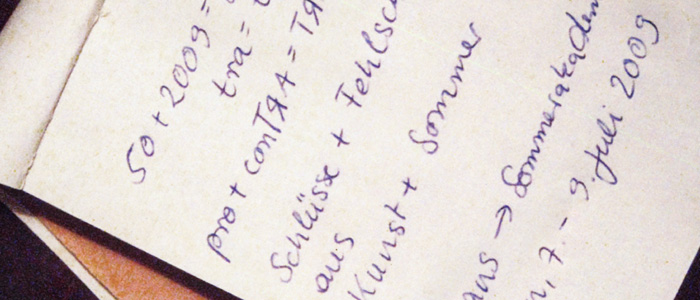 50 + 2009 =
tra =
pro + conTЯA = TЯ
Schlüsse + Fehlsc
aus
Kunst + Sommer
aus → Sommerakadem
n, 7. - 9. Juli 2009